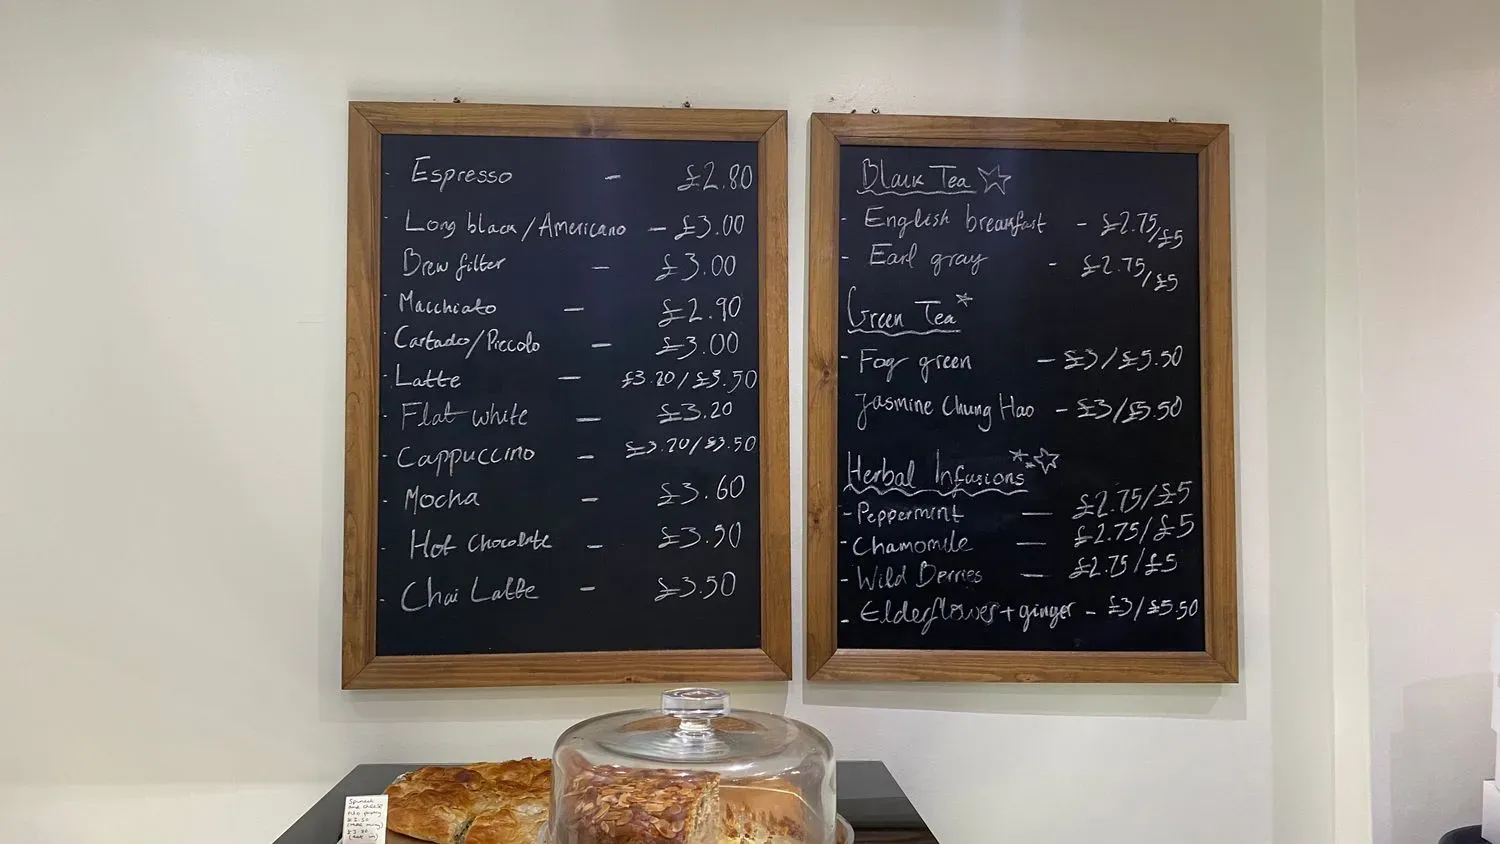 - Espresso - £2.80
- Long black/Americano - £3.00
Brew filter - £3.00
- Macchiato - £2.90
- Cortado/Piccolo - £3.00
- Latte - £3.20/£3.50
- Flat white - £3.20
- Cappuccino - £3.20/£3.50
- Mocha - £3.60
- Hot Chocolate - £3.50
- Chai Latte - £3.50
Black Tea
- English breakfast - £2.75/£5
- Earl gray - £2.75/£5
Green Tea*
- Fog green - £3/£5.50
Jasmine Chung Hao - £3/£5.50
Herbal Infusions*
- Peppermint - £2.75/£5
- Chamomile - £2.75/£5
- Wild Berries - £2.75/£5
- Elderflower + ginger - £3/£5.50
Spinach
and cheese
filo pastry
(take away)